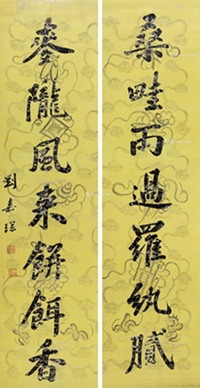 桑畦雨過羅紈膩
麥隴風來餅餌香
劉嘉琛